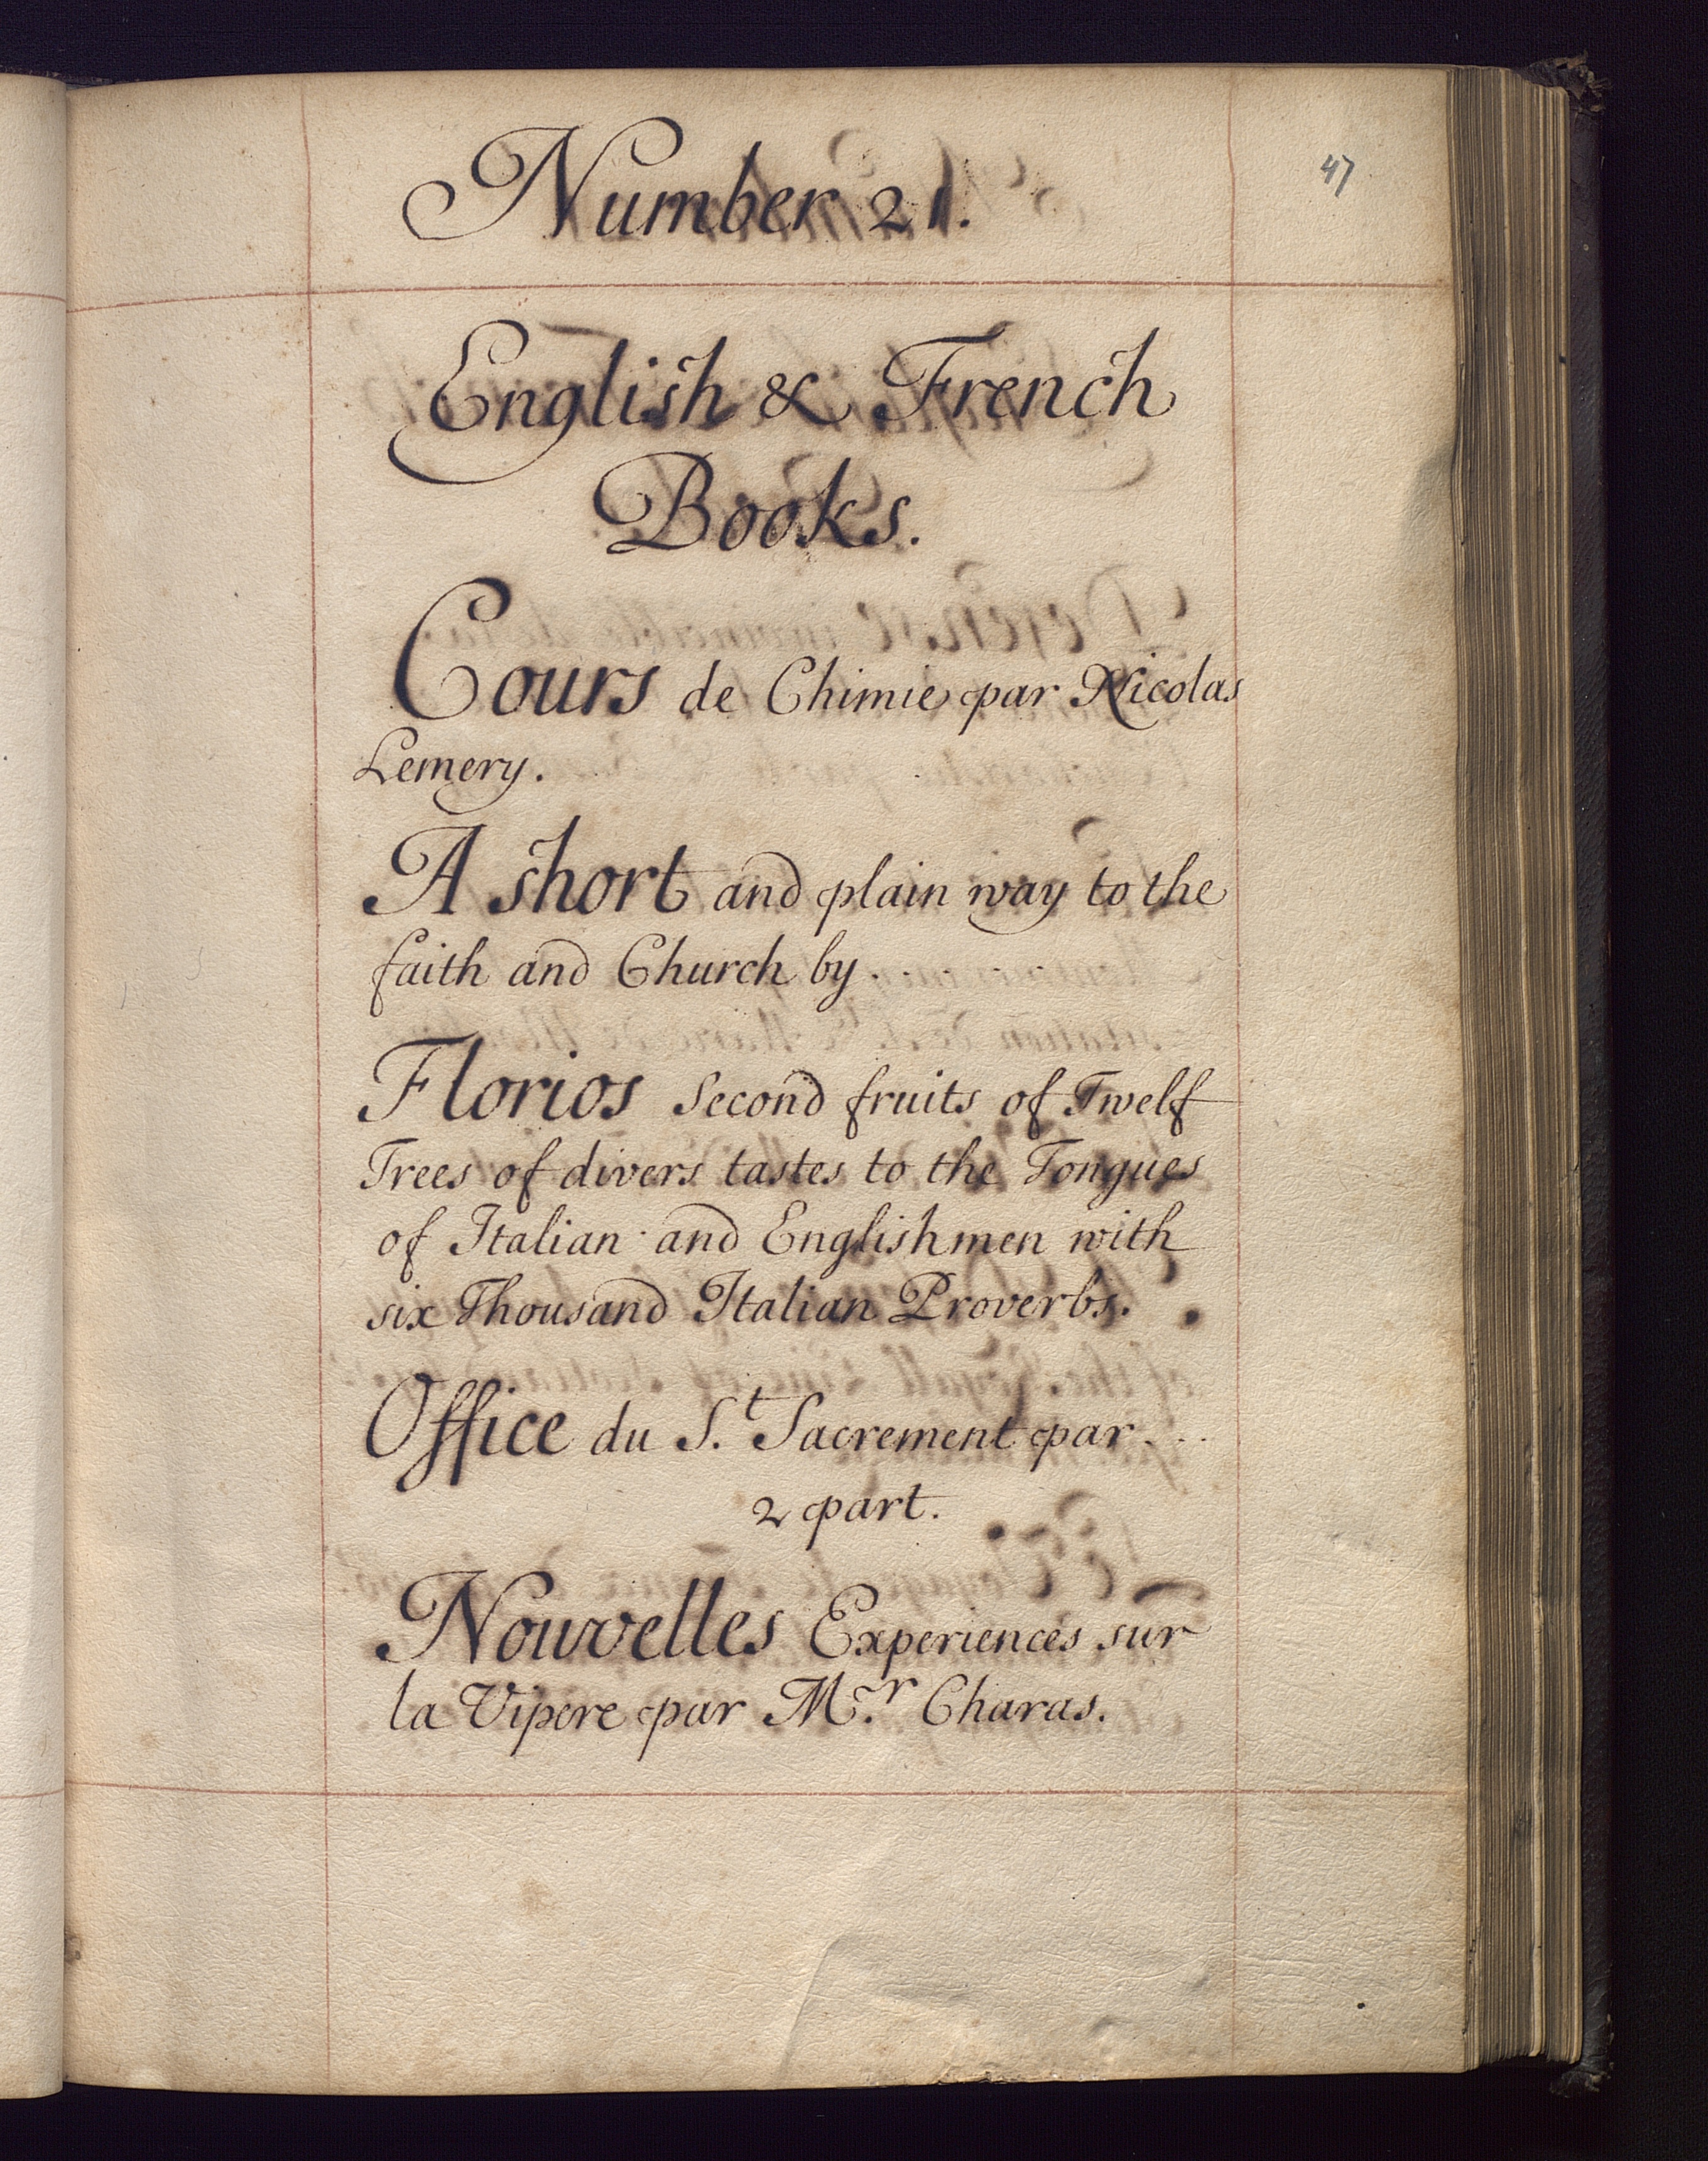 47
Number 21.
English & French
Books.
Cours de Chimie par Nicolas
Lemery.
A short and plain way to the
faith and Church by.
Florios Second fruits of Twelf
Trees of divers tastes to the Tongues
of Italian and Englishmen with
six Thousand Italian Proverbs.
Office du S.t Sacrement par...
2 part.
Nouvelles Experiences sur
la Vipere par M.r Charas.